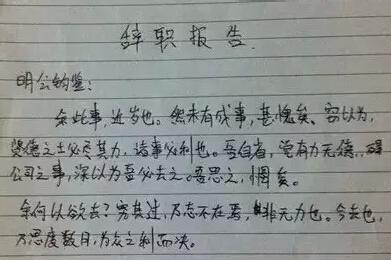 辞职报告
明公钧鉴：
余此事，近岁也。然未有成事，甚愧矣。窃以为，
贤德之士必尽其力，诸事必利也。吾自省，觉有力无德，碍
公司之事，深以为吾必去之。吾思之，惘矣。
余何以欲去？究其过，乃志不在焉，非无力也。今去也，
乃思度数月，为众之利而决。